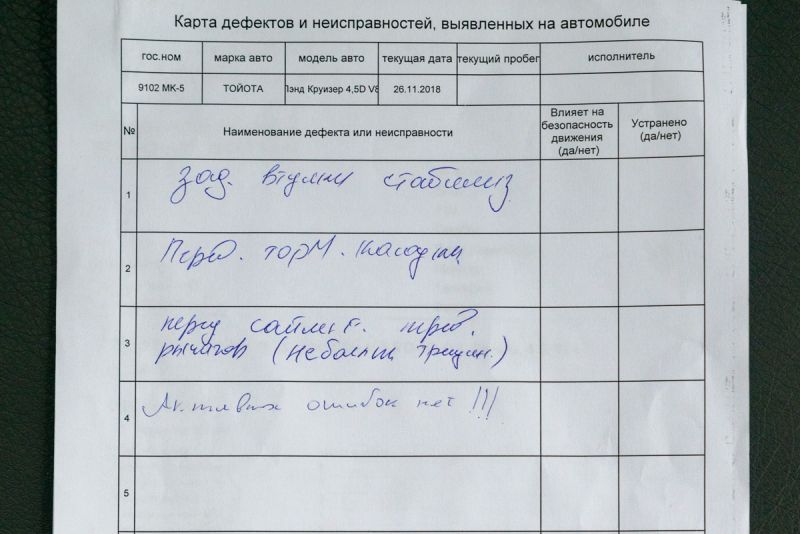 Карта дефектов и неисправностей, выявленных на автомобиле
гос.ном марка авто модель авто текущая дата текущий пробег исполнитель
9102 МК-5 ТОЙОТА Лэнд Круизер 4,5D V8 26.11.2018
№ Наименование дефекта или неисправности Влияет на безопасность движения (да/нет) Устранено (да/нет)
1 зад. втулки стабилиз
2 Перед. торм. колодки
3 перед сайлент. перед.
рычагов (небольш трещин.)
4 Активных ошибок нет !!!
5